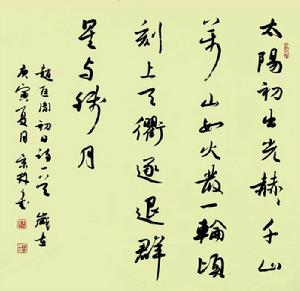 太陽初出光赫々千山
萬山如火發一輪頃
刻上天衢逐退群
星与残月
趙匡胤初日詩一首 歲在
庚寅夏月